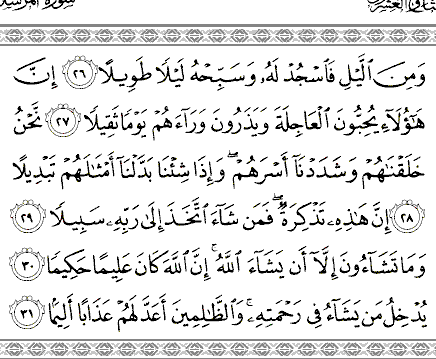 وَمِنَ ٱلَّيۡلِ فَٱسۡجُدۡ لَهُۥ وَسَبِّحۡهُ لَيۡلٗا طَوِيلًا ٢٦ إِنَّ
هَٰٓؤُلَآءِ يُحِبُّونَ ٱلۡعَاجِلَةَ وَيَذَرُونَ وَرَآءَهُمۡ يَوۡمٗا ثَقِيلٗا ٢٧ نَّحۡنُ
خَلَقۡنَٰهُمۡ وَشَدَدۡنَآ أَسۡرَهُمۡۖ وَإِذَا شِئۡنَا بَدَّلۡنَآ أَمۡثَٰلَهُمۡ تَبۡدِيلًا
٢٨ إِنَّ هَٰذِهِۦ تَذۡكِرَةٞۖ فَمَن شَآءَ ٱتَّخَذَ إِلَىٰ رَبِّهِۦ سَبِيلٗا ٢٩
وَمَا تَشَآءُونَ إِلَّآ أَن يَشَآءَ ٱللَّهُۚ إِنَّ ٱللَّهَ كَانَ عَلِيمًا حَكِيمٗا ٣٠
يُدۡخِلُ مَن يَشَآءُ فِي رَحۡمَتِهِۦۚ وَٱلظَّٰلِمِينَ أَعَدَّ لَهُمۡ عَذَابًا أَلِيمَۢا ٣١